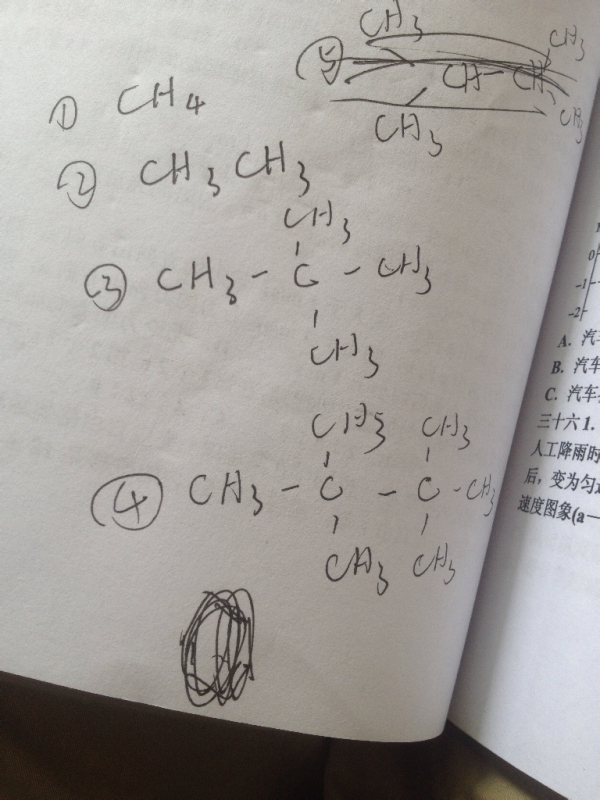 ① CH4
② CH3CH3
CH3
③ CH3 - C - CH3
CH3
CH3 CH3
④ CH3 - C - C - CH3
CH3 CH3
CH3 CH3
⑤ CH - CH
CH3 CH3
0
-1
-2
A. 汽车
B. 汽车
C. 汽车
三十六1.
人工降雨时
后，变为匀
速度图象(a—